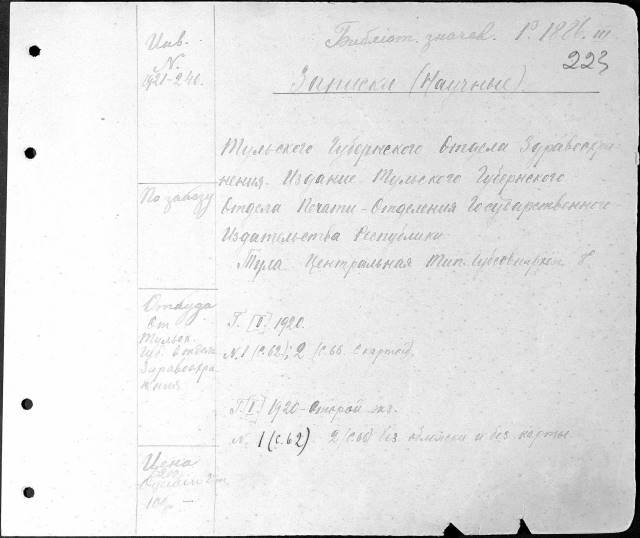 Инв.
N.
1921-240.
Библіот. значек. P. 1881. III
223
Записки (Научные)
Тульского Губернского Отдела Здравоохра-
нения. Издание Тульского Губернского
Отдела Печати-Отделения Государственного
Издательства Республики
Тула. Центральная Тип. 8°
По заводу
Откуда
От
Тульск.
Губ. Отдела
Здравоохра
нения
Г. [I] 1920.
N. 1 (с. 62); 2 (с. 66. с картой).
Г. [I] 1920 - второй экз.
N. 1 (с. 62) 2 (с. 66) без и без карты.
Цена